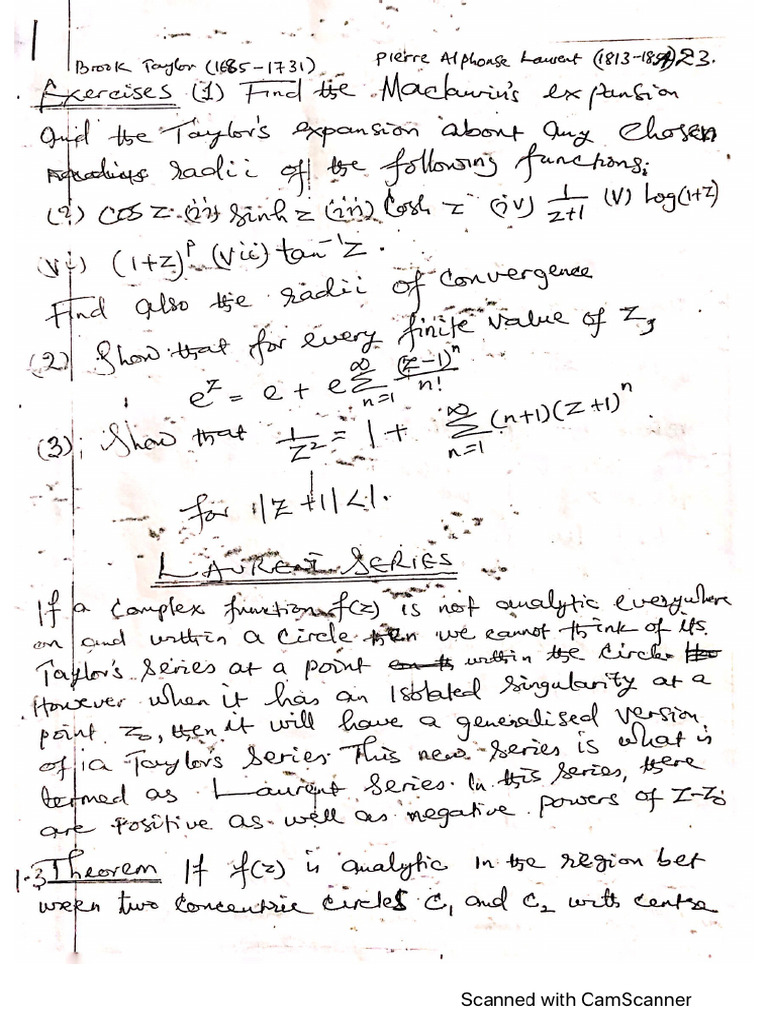 1
Brook Taylor (1685-1731) Pierre Alphonse Laurent (1813-1854) 23.
Exercises (1) Find the Maclaurin's expansion
and the Taylor's expansion about any chosen
radii of the following functions;
(i) cos z (ii) sinh z (iii) Cosh z (iv) 1/(z+1) (v) Log(1+z)
(vi) (1+z)^p (vii) tan⁻¹z.
Find also the radii of convergence
(2) Show that for every finite value of z,
e^z = e + e ∑_{n=1}^{∞} (z-1)^n / n!
(3) Show that 1/z² = 1 + ∑_{n=1}^{∞} (n+1)(z+1)^n
for |z+1|<1.
LAURENT SERIES
If a complex function f(z) is not analytic everywhere
on and within a circle then we cannot think of its
Taylor's series at a point within the circle
However when it has an isolated singularity at a
point z₀, then it will have a generalised version
of a Taylor's series. This new series is what is
termed as Laurent series. In this series, there
are positive as well as negative powers of z-z₀
1.3 Theorem If f(z) is analytic in the region bet
ween two concentric circles C₁ and C₂ with centre
Scanned with CamScanner